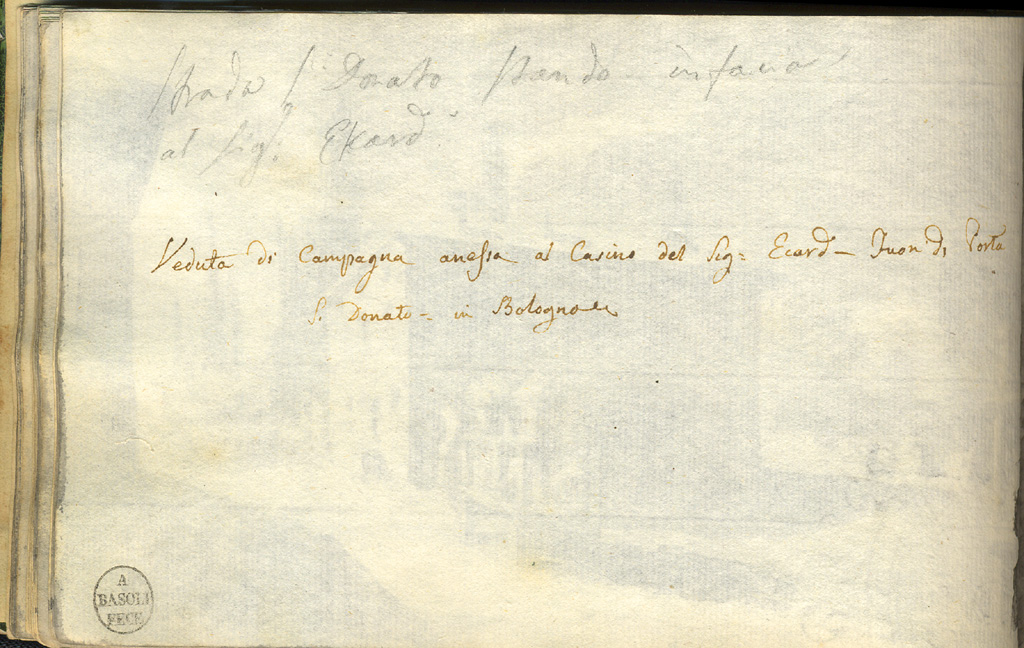 Strada S. Donato stando in facia
al Sig.r Ekard
Veduta di Campagna anessa al Casino del Sig= Ecard- Fuori di Porta
S. Donato= in Bologna
A
BASOLI
FECE